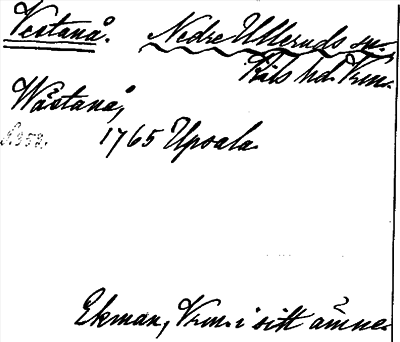 Vestanå. Nedre Ulleruds sn.
Kils hd. Vrm.
Wästanå,
S. 352. 1765 Upsala
Ekman, Vrm. i sitt ämne.